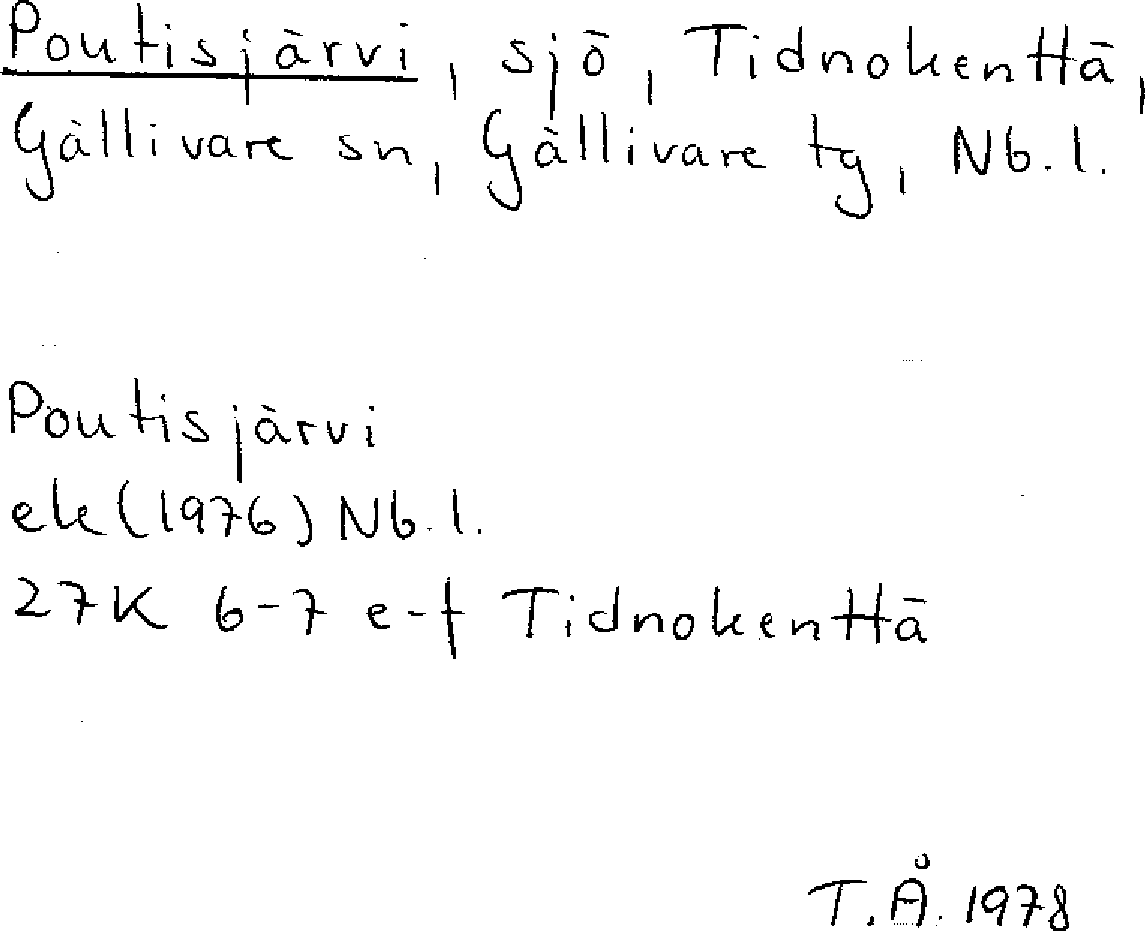 Poutisjärvi, sjö, Tidnokenttä,
Gällivare sn, Gällivare tg, Nb. l.
Poutisjärvi
ek (1976) Nb. l.
27K 6-7 e-f Tidnokenttä
T.Å. 1978